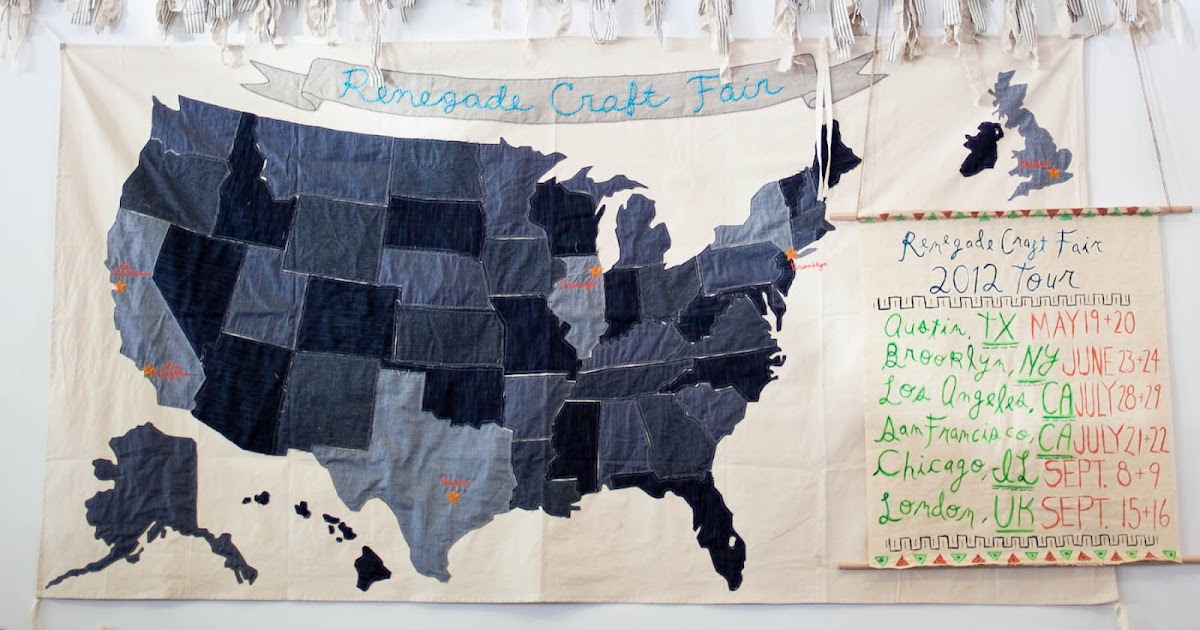 Renegade Craft Fair
London
San Francisco
Chicago
Brooklyn
Los Angeles
Austin
Renegade Craft Fair
2012 Tour
Austin, TX MAY 19+20
Brooklyn, NY JUNE 23+24
Los Angeles, CA JULY 28+29
San Francisco, CA JULY 21+22
Chicago, IL SEPT. 8+9
London, UK SEPT. 15+16